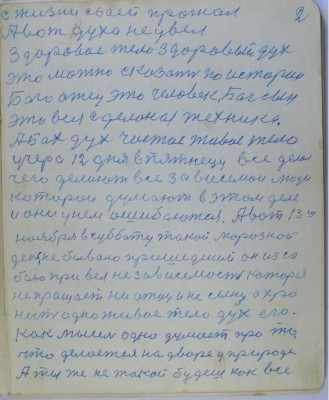 2
с жизни своей прогнал
А вот духа не увел
Здоровое тело Здоровый дух
это можно сказать по истории
Бог отец это человек, Бог сын
это вся сделоная техника.
А Бог дух чистое живое тело
учера 12 дня в пятнецу все дела
чего делают все зависемои люди
котории думают в этом деле
и они у нем ошибаются. А вот 13
ноября в субботу такой морозной
день не бывало пришедший он из са
бою привел независемость которая
не пращает ни отцу и не сыну а хро
нит одно живое тело дух его.
Как мысем одно думает про то,
что делается на дворе у природе
А ты же не такой будеш как все